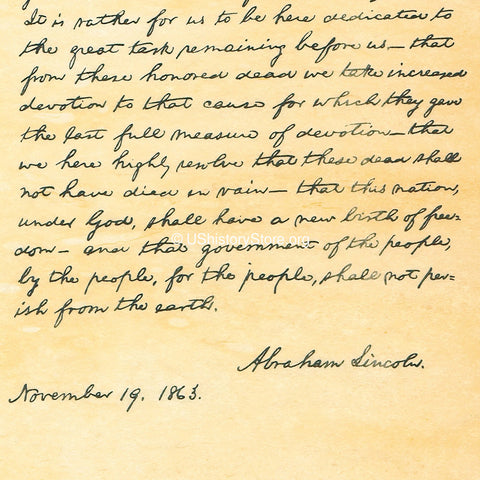 It is rather for us to be here dedicated to
the great task remaining before us— that
from these honored dead we take increased
devotion to that cause for which they gave
the last full measure of devotion— that
we here highly resolve that these dead shall
not have died in vain— that this nation,
under God, shall have a new birth of free=
dom— and that government of the people,
© UShistoryStore.org
by the people, for the people, shall not per=
ish from the earth.
Abraham Lincoln.
November 19. 1863.